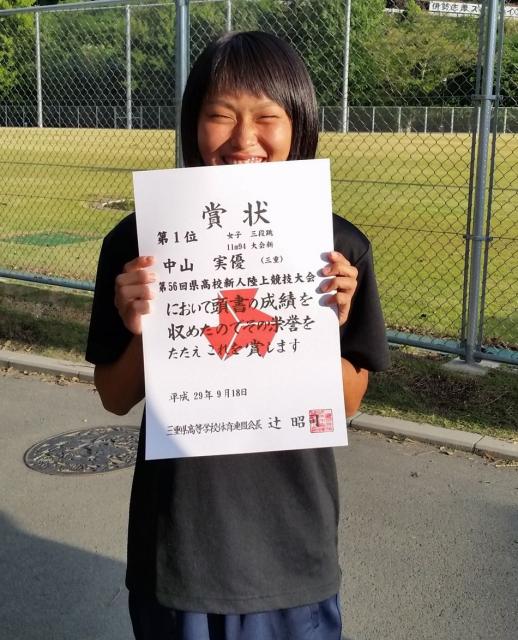 賞状
第1位
女子 三段跳
11m94 大会新
中山 実優 (三重)
第56回県高校新人陸上競技大会
において頭書の成績を
収めたのでその栄誉を
たたえこれを賞します
平成 29年 9月18日
三重県高等学校体育連盟会長 辻 昭